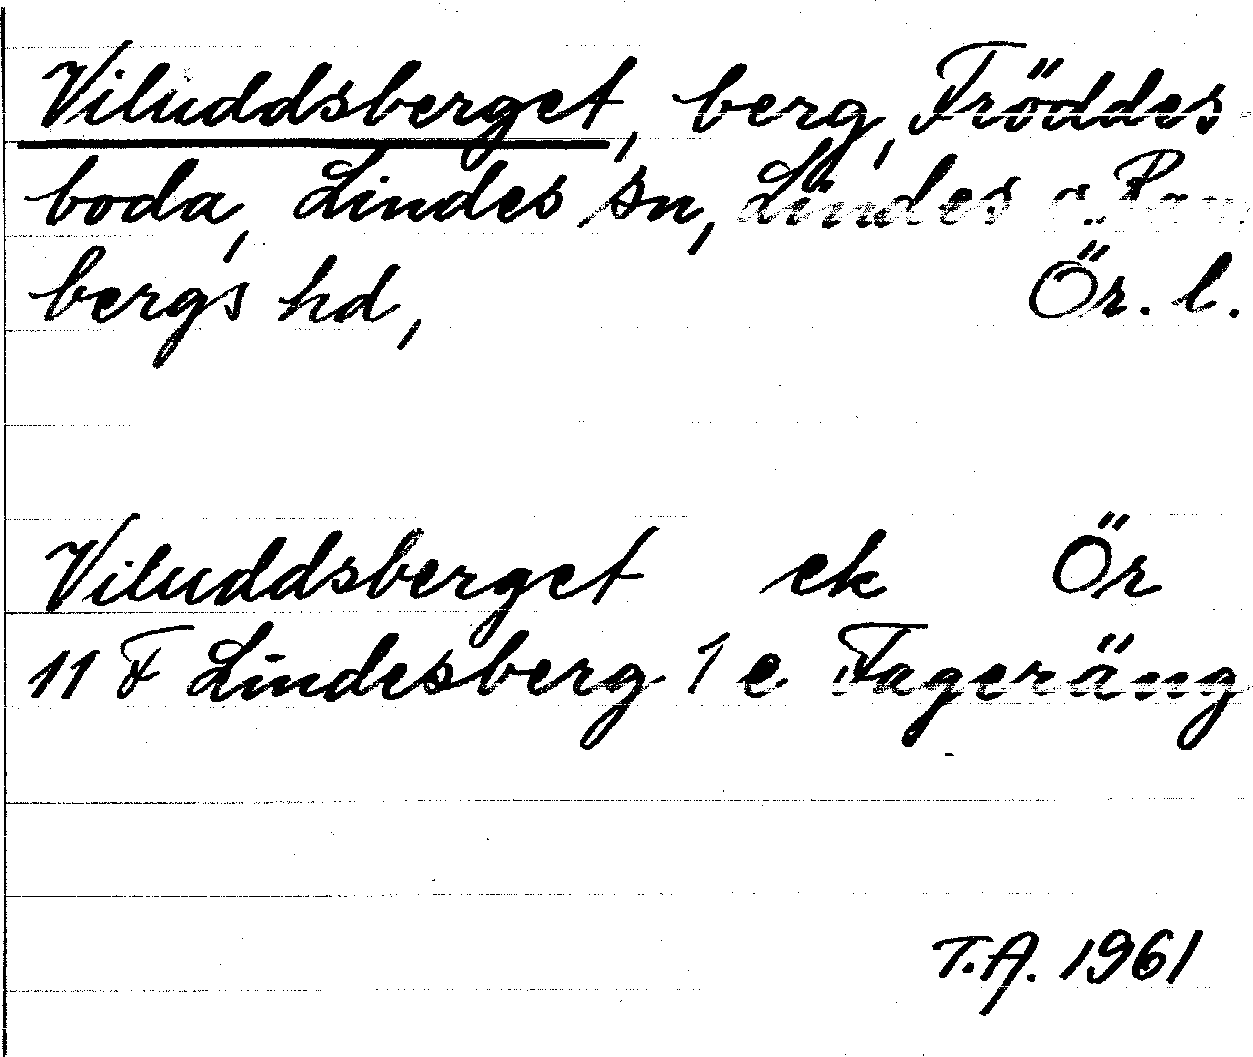 Viluddsberget, berg, Fröddes-
boda, Lindes sn, Lindes o. Ram
bergs hd, Ör. l.
Viluddsberget ek Ör
11 F Lindesberg 1 e Fageräng
T.A. 1961